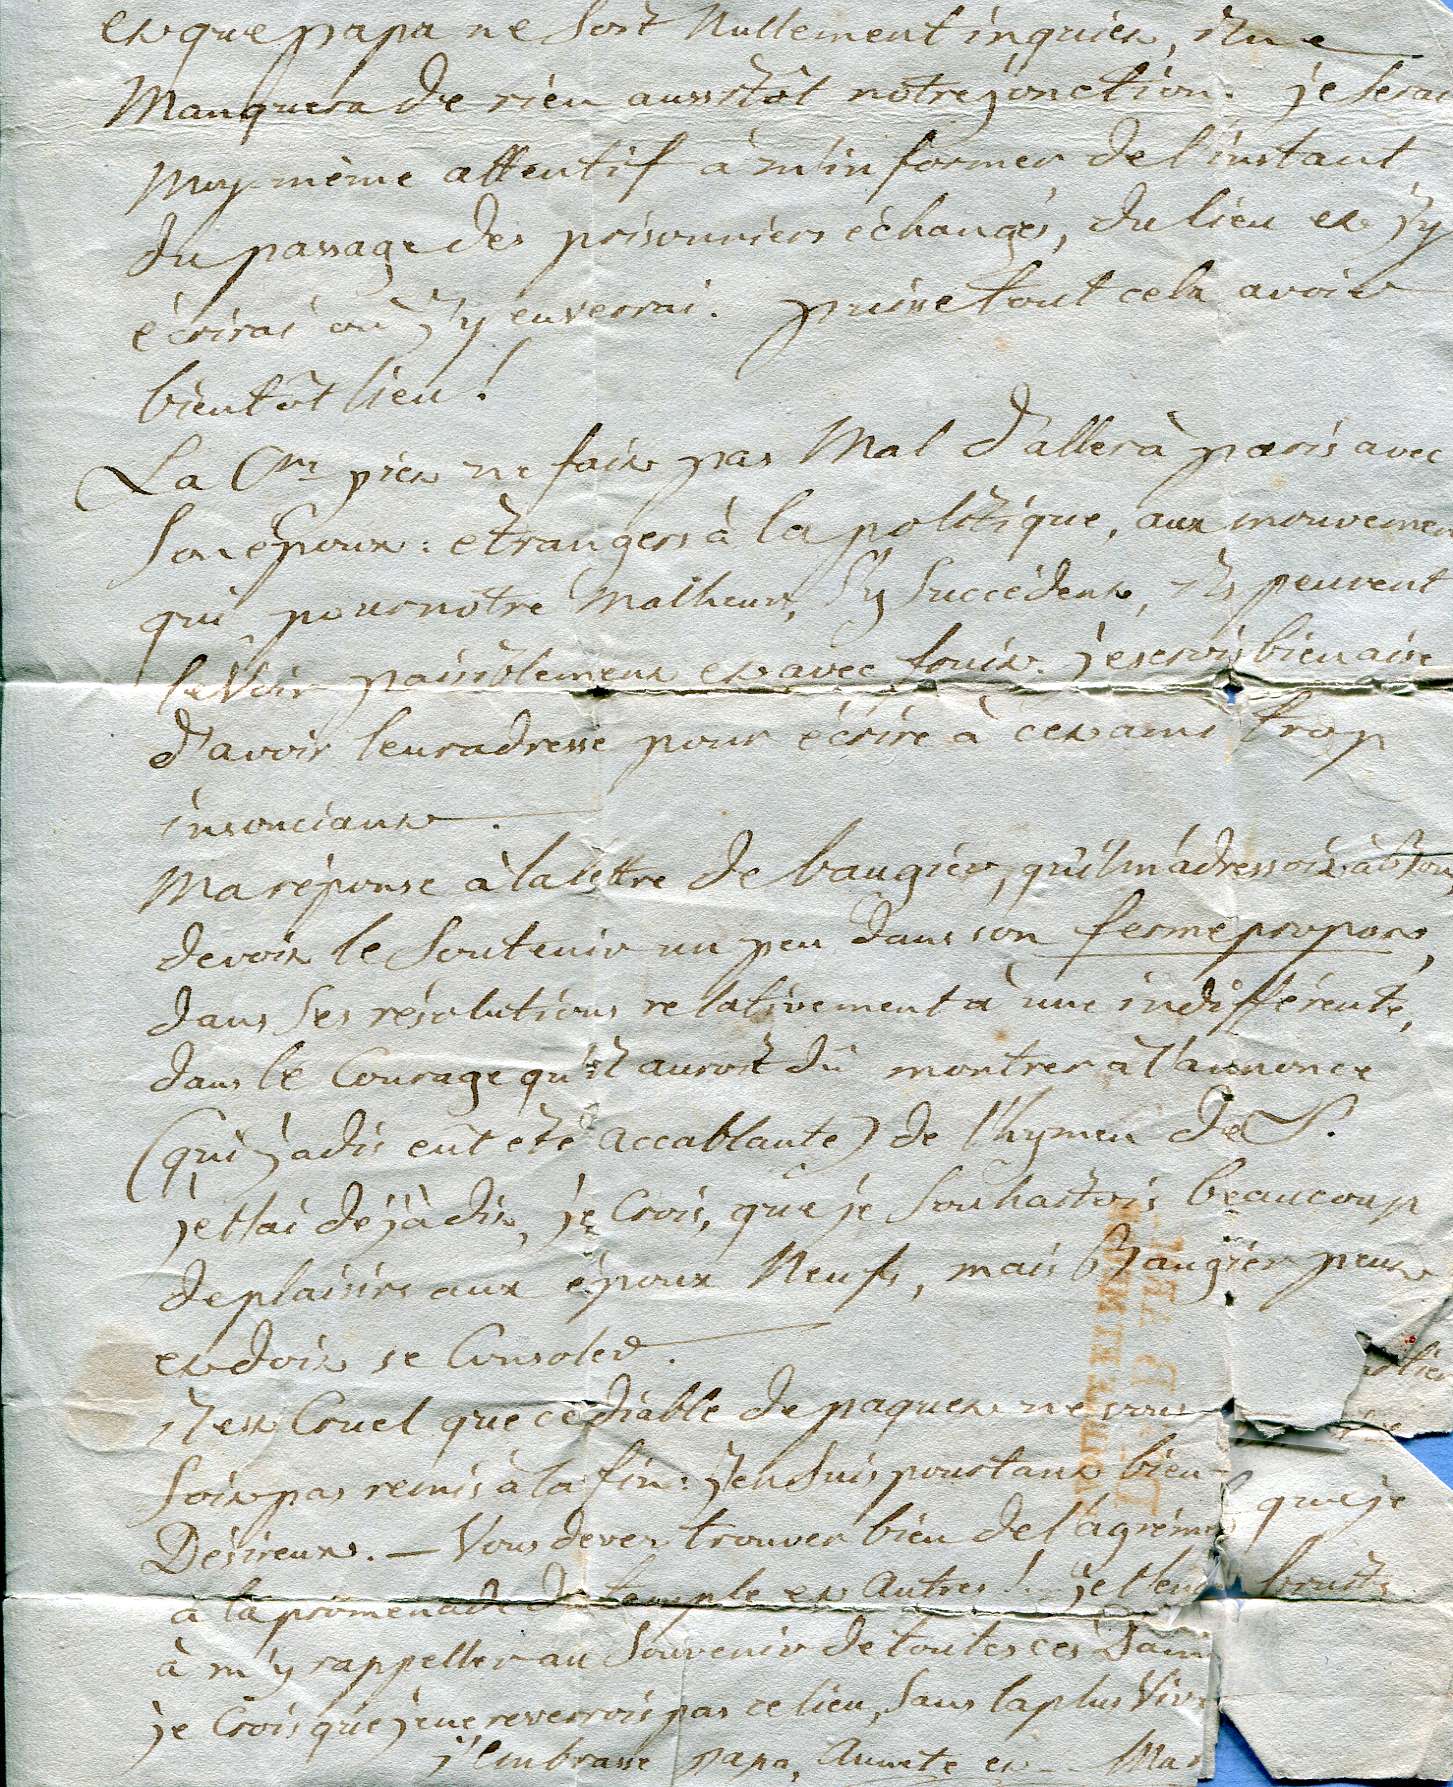 et que papa ne soit Nullement inquiet, il ne
Manquera de rien aussitôt notre jonction. je serai
Moy-même attentif à m'informer de l'instant
du passage des prisonniers échangés, du lieu et j'y
écrirai ou j'y enverrai. puisse tout cela avoir
bientôt lieu!
La Cne piet ne fait pas Mal d'aller à paris avec
Son époux: étrangers à la politique, aux mouvemen
qui pour notre Malheur, s'y Succédent, ils peuvent
le voir paisiblement et avec fruit. j'eserois bien aise
d'avoir leur adresse pour écrire à cet ami trop
insouciant.
Ma réponse à la lettre de baugier, qu'il m'adressoit à
devoit le Soutenir un peu dans son ferme propos,
dans Ses résolutions relativement à une indifférente,
dans le Courage qu'il auroit dû montrer à l'annonce
(qui jadis eût été accablante) de l'hymen de S.
je t'ai déjà dit, je Crois, que je Souhaitois beaucoup
de plaisirs aux époux Neufs, mais Baugier peut
et doit se Consoler.
il est Cruel que ce diable de paquet ne vous
Soit pas remis à la fin: j'en suis pourtant bien
Désireux. — Vous devez trouver bien de l'agrém que je
à la promenade du temple et Autres! je t'en bruits
à m'y rappeller au Souvenir de toutes ces Dam
je Crois que je ne reverrois pas ce lieu, Sans la plus Viv
j'Embrasse papa, Annete et Ma